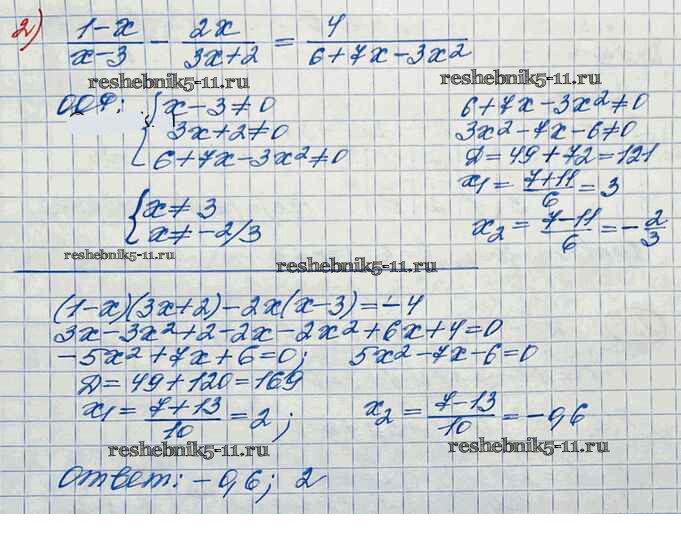 2) (1-x)/(x-3) - 2x/(3x+2) = 4/(6+7x-3x²)
reshebnik5-11.ru
reshebnik5-11.ru
ООФ: { x-3≠0
3x+2≠0
6+7x-3x²≠0
6+7x-3x²≠0
3x²-7x-6≠0
Д=49+72=121
x₁=(7+11)/6=3
x₂=(7-11)/6=-2/3
{ x≠3
x≠-2/3
reshebnik5-11.ru
reshebnik5-11.ru
(1-x)(3x+2)-2x(x-3)=-4
3x-3x²+2-2x-2x²+6x+4=0
-5x²+7x+6=0; 5x²-7x-6=0
Д=49+120=169
x₁=(7+13)/10=2; x₂=(7-13)/10=-0,6
reshebnik5-11.ru
reshebnik5-11.ru
Ответ: -0,6; 2